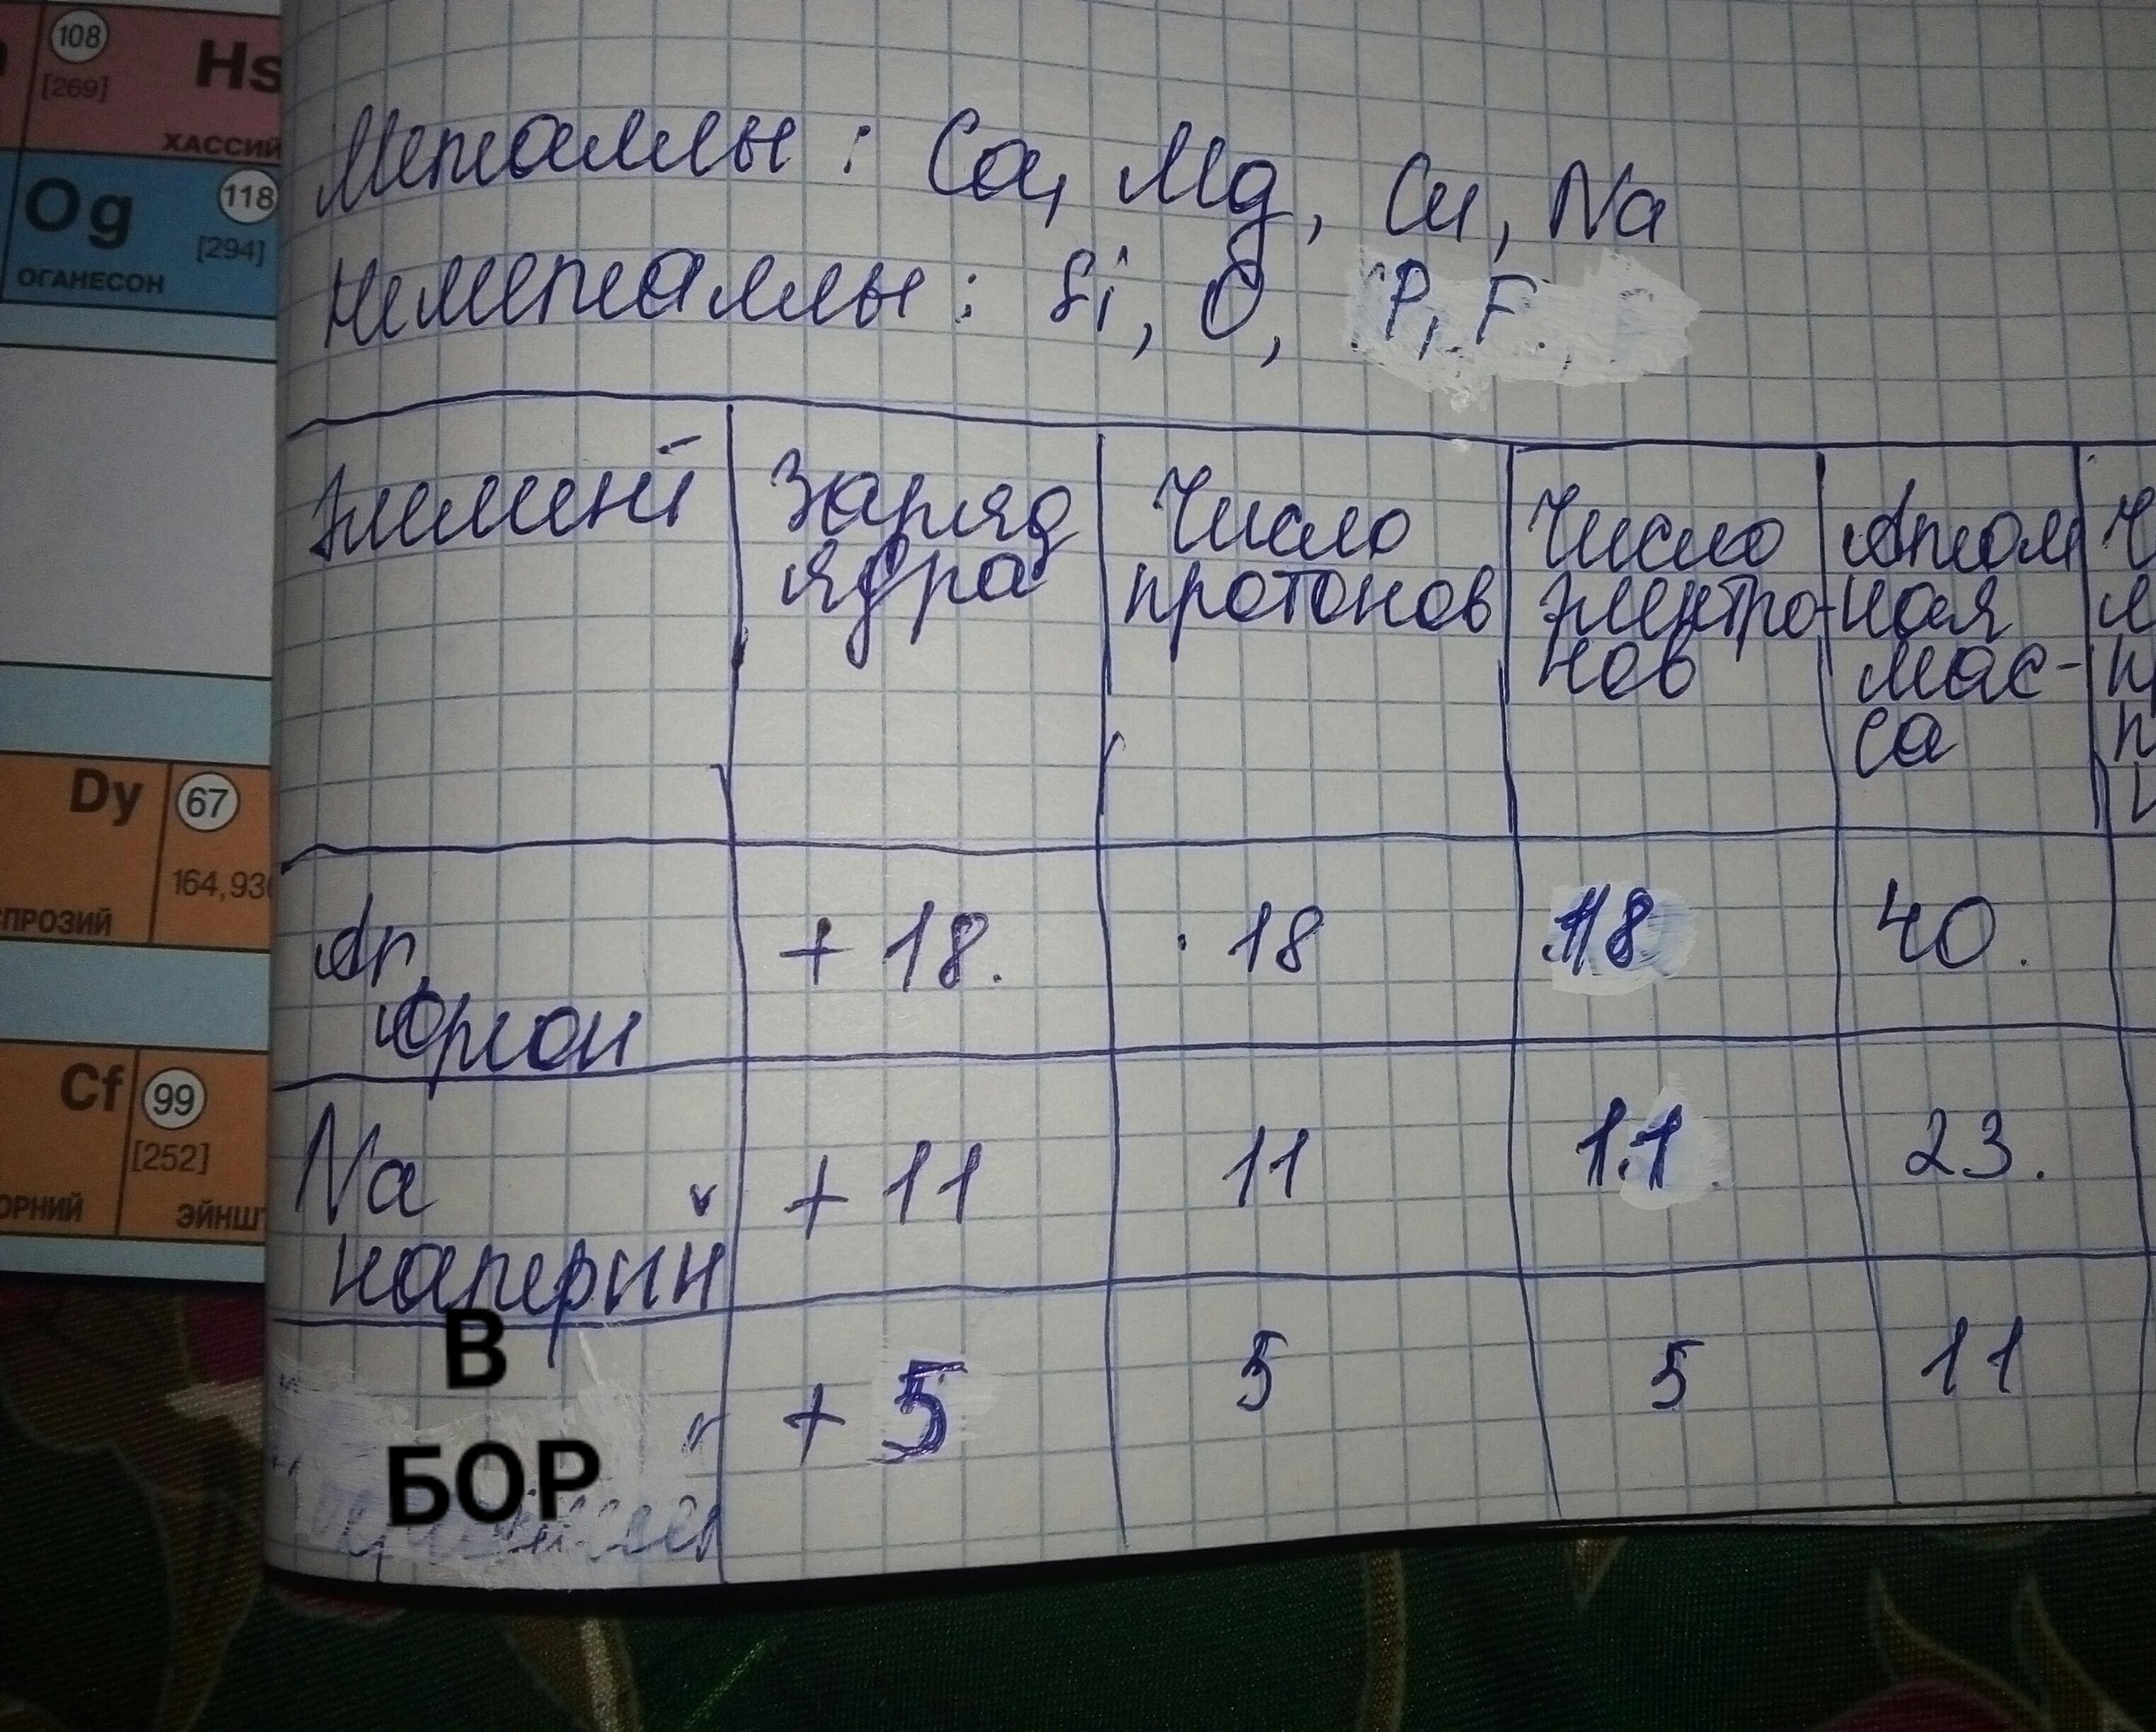 108
Hs
[269]
ХАССИЙ
Og
118
[294]
ОГАНЕСОН
Dy
67
164,93
СПРОЗИЙ
Cf
99
[252]
ОРНИЙ
ЭЙНШТ
Металлы : Ca, Mg, Cu, Na
Неметаллы : Si, O, P, F
Элемент
Заряд
ядра
Число
протонов
Число
электро-
нов
Атом
ная
мас-
са
Ar
Аргон
+ 18.
18
18
40.
Na
натрий
+ 11
11
11
23.
В
БОР
+ 5
5
5
11